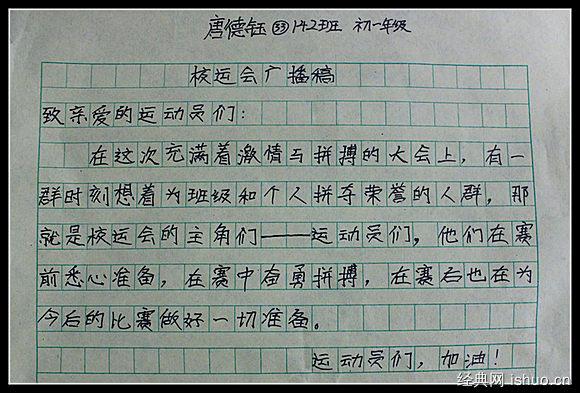 唐德钰 33 142班 初一年级
校运会广播稿
致亲爱的运动员们：
在这次充满着激情与拼搏的大会上，有一
群时刻想着为班级和个人拼夺荣誉的人群，那
就是校运会的主角们——运动员们，他们在赛
前悉心准备，在赛中奋勇拼搏，在赛后也在为
今后的比赛做好一切准备。
运动员们，加油！
经典网 ishuo.cn